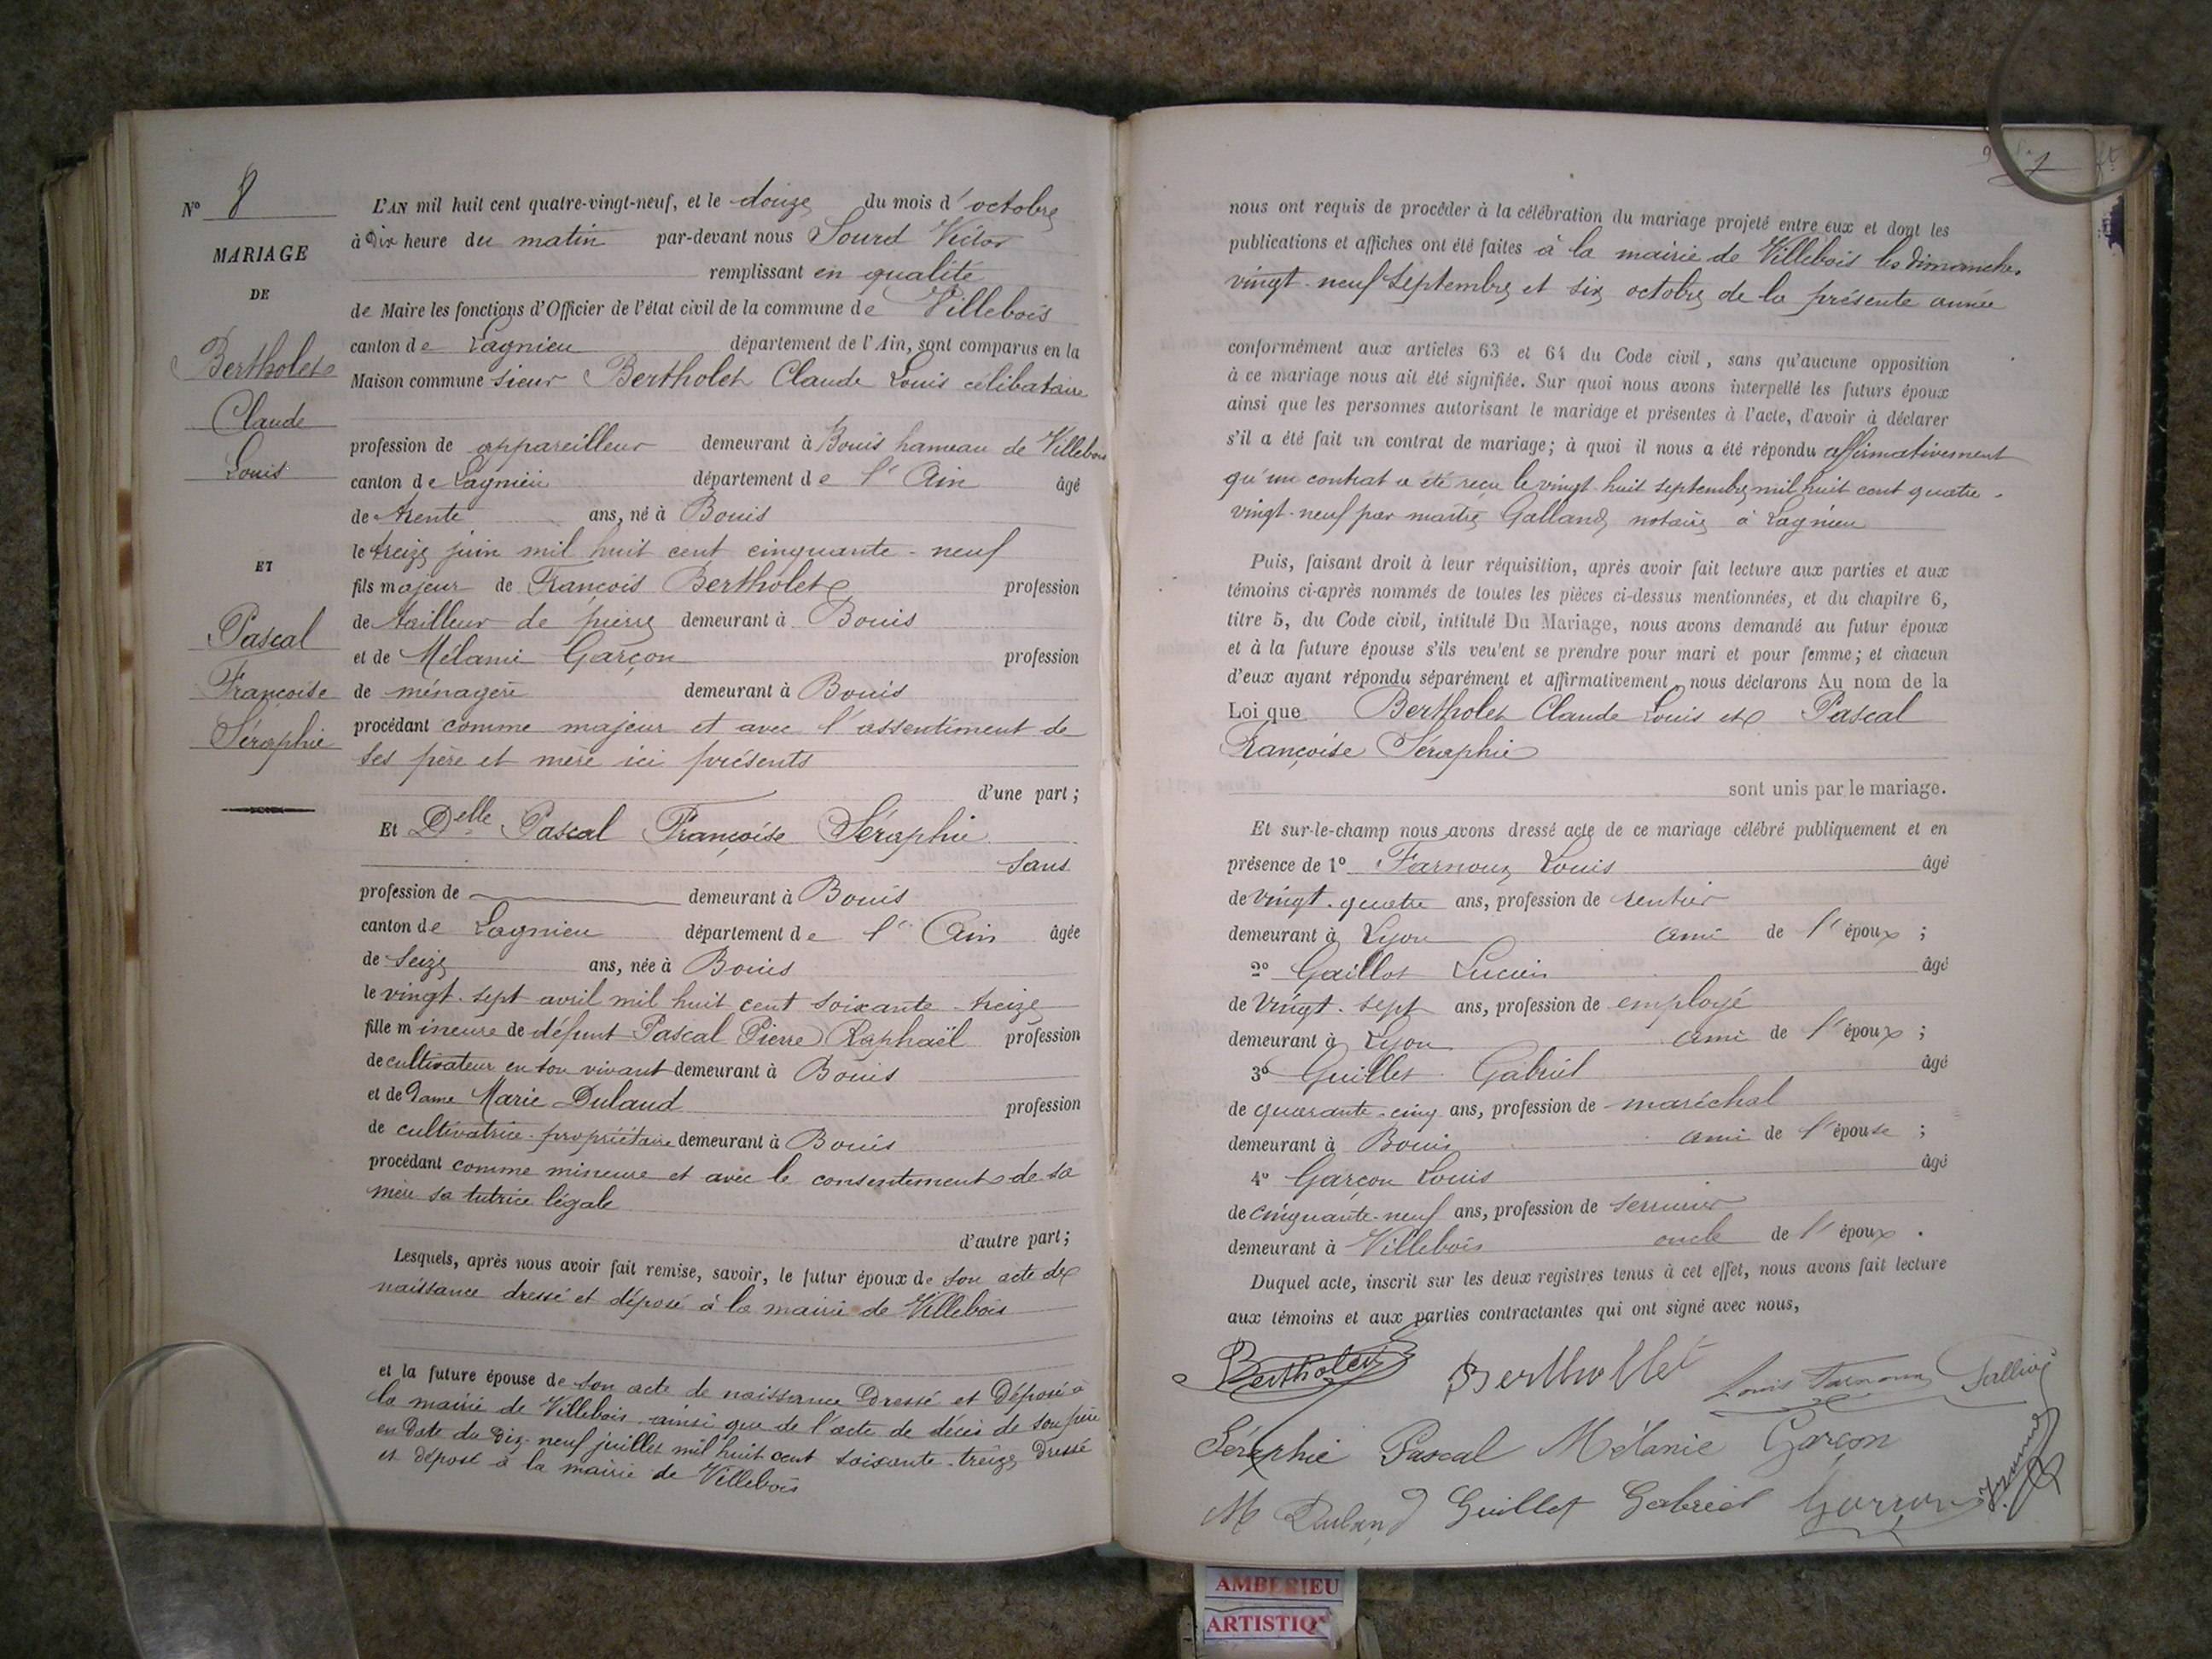 N° 8
MARIAGE
DE
Bertholet
Claude
Louis
ET
Pascal
Françoise
Séraphie
L'AN mil huit cent quatre-vingt-neuf, et le douze du mois d'octobre
à dix heure du matin par-devant nous Sourd Victor
remplissant en qualité
de Maire les fonctions d'Officier de l'état civil de la commune de Villebois
canton de Lagnieu département de l'Ain, sont comparus en la
Maison commune sieur Bertholet Claude Louis célibataire
profession de appareilleur demeurant à Bouis hameau de Villebois
canton de Lagnieu département de l'Ain âgé
de trente ans, né à Bouis
le treize juin mil huit cent cinquante-neuf
fils majeur de François Bertholet profession
de tailleur de pierre demeurant à Bouis
et de Mélanie Garçon profession
de ménagère demeurant à Bouis
procédant comme majeur et avec l'assentiment de
ses père et mère ici présents
d'une part;
Et Delle Pascal Françoise Séraphie
sans
profession de demeurant à Bouis
canton de Lagnieu département de l'Ain âgée
de seize ans, née à Bouis
le vingt-sept avril mil huit cent soixante-treize
fille mineure de défunt Pascal Pierre Raphaël profession
de cultivateur en son vivant demeurant à Bouis
et de Dame Marie Dulaud profession
de cultivatrice-propriétaire demeurant à Bouis
procédant comme mineure et avec le consentement de sa
mère sa tutrice légale
d'autre part;
Lesquels, après nous avoir fait remise, savoir, le futur époux de son acte de
naissance dressé et déposé à la mairie de Villebois
et la future épouse de son acte de naissance dressé et déposé à
la mairie de Villebois ainsi que de l'acte de décès de son père
en date du dix-neuf juillet mil huit cent soixante-treize dressé
et déposé à la mairie de Villebois
nous ont requis de procéder à la célébration du mariage projeté entre eux et dont les
publications et affiches ont été faites à la mairie de Villebois les dimanches
vingt-neuf septembre et six octobre de la présente année
conformément aux articles 63 et 64 du Code civil, sans qu'aucune opposition
à ce mariage nous ait été signifiée. Sur quoi nous avons interpellé les futurs époux
ainsi que les personnes autorisant le mariage et présentes à l'acte, d'avoir à déclarer
s'il a été fait un contrat de mariage; à quoi il nous a été répondu affirmativement
qu'un contrat a été reçu le vingt-huit septembre mil huit cent quatre-
vingt-neuf par maitre Galland notaire à Lagnieu
Puis, faisant droit à leur réquisition, après avoir fait lecture aux parties et aux
témoins ci-après nommés de toutes les pièces ci-dessus mentionnées, et du chapitre 6,
titre 5, du Code civil, intitulé Du Mariage, nous avons demandé au futur époux
et à la future épouse s'ils veulent se prendre pour mari et pour femme; et chacun
d'eux ayant répondu séparément et affirmativement, nous déclarons Au nom de la
Loi que Bertholet Claude Louis et Pascal
Françoise Séraphie
sont unis par le mariage.
Et sur-le-champ nous avons dressé acte de ce mariage célébré publiquement et en
présence de 1° Farnoux Louis âgé
de vingt-quatre ans, profession de rentier
demeurant à Lyon ami de l'époux;
2° Gaillot Lucien âgé
de vingt-sept ans, profession de employé
demeurant à Lyon ami de l'époux;
3° Guillet Gabriel âgé
de quarante-cinq ans, profession de maréchal
demeurant à Bouis ami de l'épouse;
4° Garçon Louis âgé
de cinquante-neuf ans, profession de serrurier
demeurant à Villebois oncle de l'époux.
Duquel acte, inscrit sur les deux registres tenus à cet effet, nous avons fait lecture
aux témoins et aux parties contractantes qui ont signé avec nous,
Bertholet Berthollet Louis Farnoux
Séraphie Pascal Mélanie Garçon
M Duland Guillet Gabriel
AMBERIEU
ARTISTIQ